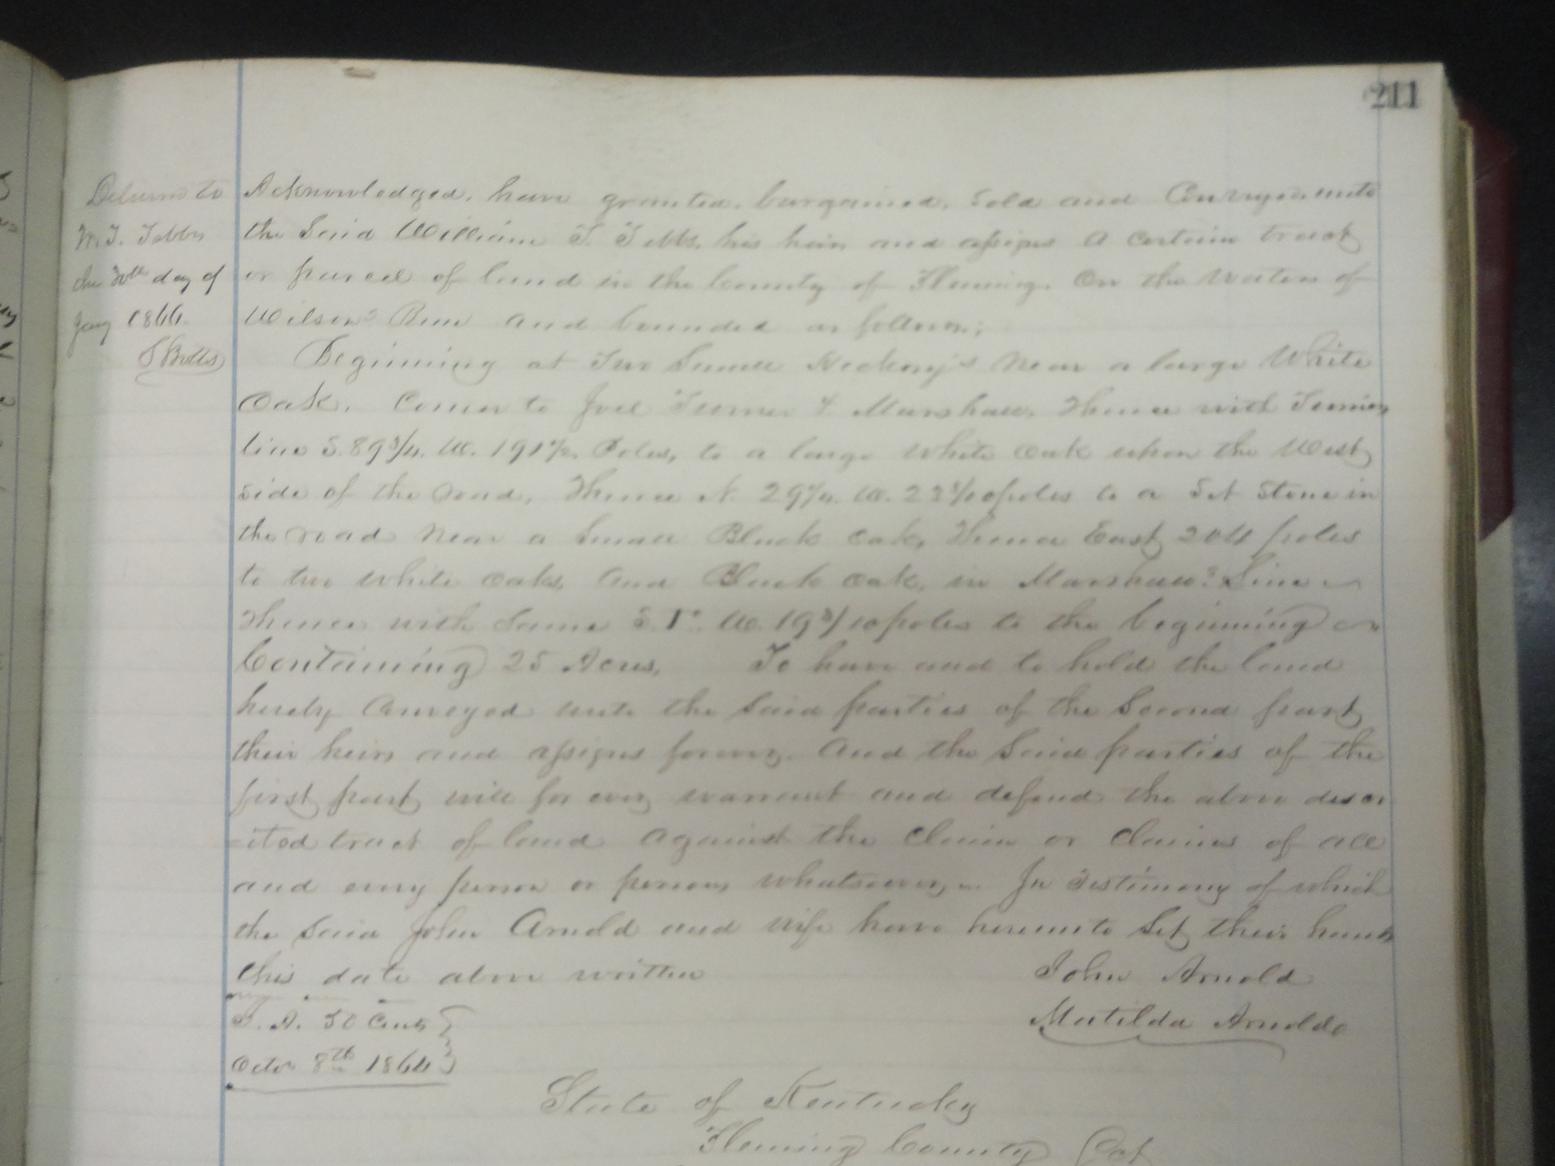 211
Delivered to
W. T. Tebbs
the 30th day of
Jany 1866.
Acknowledged. have granted. bargained. Sold and Conveyed unto
the Said William T. Tebbs, his heirs and assigns a certain tract
or parcel of land in the County of Fleming. On the Waters of
Wilsons Run and bounded as follows;
Beginning at Two Small Hickory's near a large White
Oak. Corner to Joel Turner & Marshall, Thence with Turners
line S. 89 3/4. W. 191 Poles, to a large White Oak upon the West
side of the road, Thence N. 29 W. 23 poles to a Set Stone in
the road near a Small Black Oak, Thence East 204 poles
to two white oaks and Black oak, in Marshalls Line
Thence with Same S. 1° W. 19 3/10 poles to the beginning
Containing 25 Acres, To have and to hold the land
hereby Conveyed unto the Said parties of the Second part
their heirs and assigns forever. And the Said parties of the
first part will for ever warrant and defend the above descr
ited tract of land against the Claim or Claims of all
and every person or persons whatsoever. In Testimony of which
the Said John Arnold and wife have hereunto Set their hands
this date above written
John Arnold
Matilda Arnold
50 Cents
Octo 8th 1864
State of Kentucky
Fleming County Sct